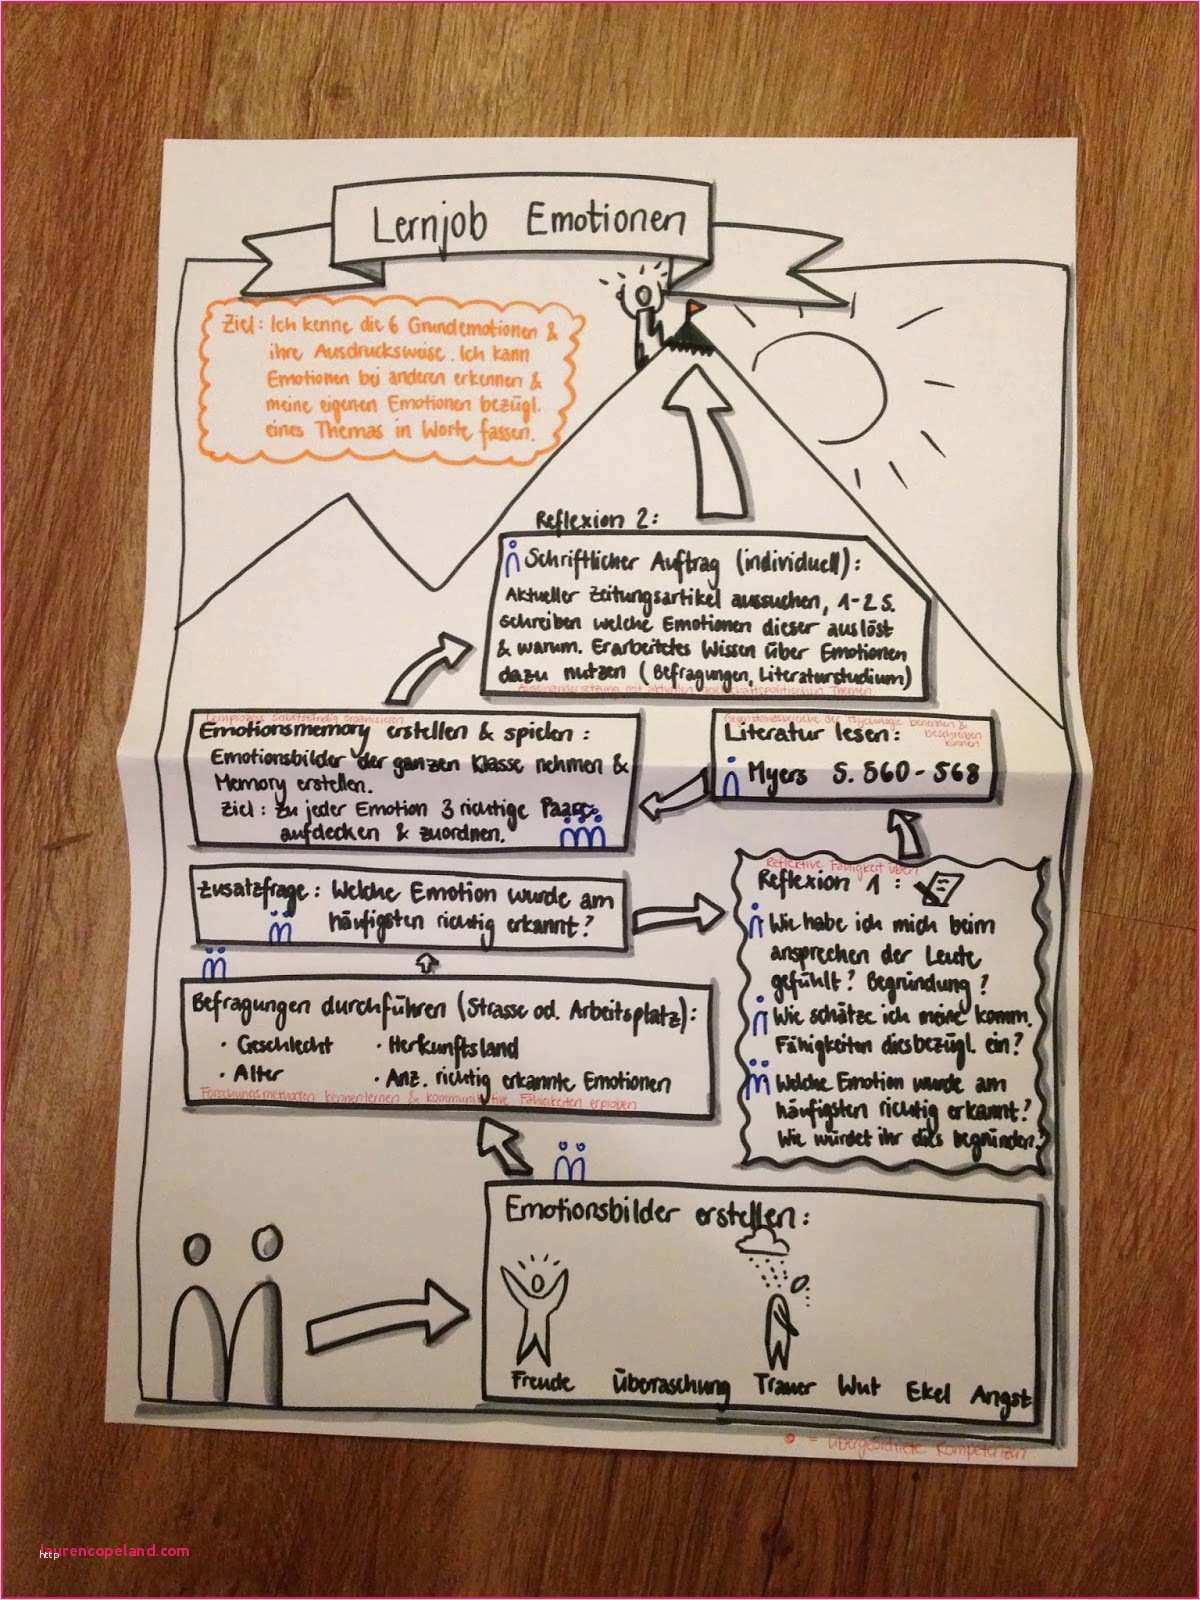 Lernjob Emotionen
Ziel: Ich kenne die 6 Grundemotionen &
ihre Ausdrucksweise. Ich kann
Emotionen bei anderen erkennen &
meine eigenen Emotionen bezügl.
eines Themas in Worte fassen.
Reflexion 2:
Schriftlicher Auftrag (individuell):
Aktueller Zeitungsartikel aussuchen, 1-2 S.
schreiben welche Emotionen dieser auslöst
& warum. Erarbeitetes Wissen über Emotionen
dazu nutzen (Befragungen, Literaturstudium)
Auseinandersetzung mit aktuellen gesellschaftspolitischen Themen
Lernprozess selbstständig organisieren
Emotionsmemory erstellen & spielen:
Emotionsbilder der ganzen Klasse nehmen &
Memory erstellen.
Ziel: Zu jeder Emotion 3 richtige Paare
aufdecken & zuordnen.
der Psychologie benennen &
beschreiben
können
Literatur lesen:
Myers S. 560-568
Zusatzfrage: Welche Emotion wurde am
häufigsten richtig erkannt?
Reflektive Fähigkeit üben
Reflexion 1:
Wie habe ich mich beim
ansprechen der Leute
gefühlt? Begründung?
Wie schätze ich meine komm.
Fähigkeiten diesbezügl. ein?
Welche Emotion wurde am
häufigsten richtig erkannt?
Wie würdet ihr dies begründen?
Befragungen durchführen (Strasse od. Arbeitsplatz):
· Geschlecht · Herkunftsland
· Alter · Anz. richtig erkannte Emotionen
Forschungsmethoden kennenlernen & kommunikative Fähigkeiten erproben
Emotionsbilder erstellen:
Freude Überraschung Trauer Wut Ekel Angst
= übergeordnete Kompetenzen
laurencopeland.com
http